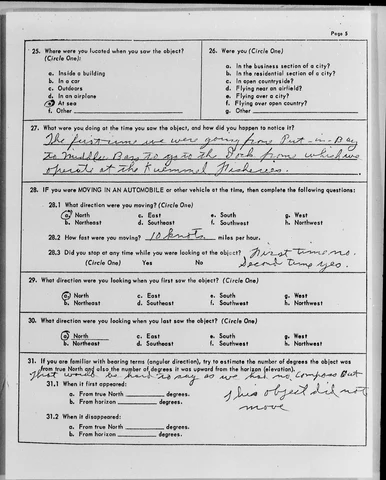 Page 5
25. Where were you located when you saw the object?
(Circle One):
a. Inside a building
b. In a car
c. Outdoors
d. In an airplane
e. At sea
f. Other
26. Were you (Circle One)
a. In the business section of a city?
b. In the residential section of a city?
c. In open countryside?
d. Flying near an airfield?
e. Flying over a city?
f. Flying over open country?
g. Other
27. What were you doing at the time you saw the object, and how did you happen to notice it?
The first time we were going from Put-in-Bay
to Middle Bass to go to the Dock from which we
operate at the Kuemmel Fisheries.
28. IF you were MOVING IN AN AUTOMOBILE or other vehicle at the time, then complete the following questions:
28.1 What direction were you moving? (Circle One)
a. North c. East e. South g. West
b. Northeast d. Southeast f. Southwest h. Northwest
28.2 How fast were you moving? 10 knots miles per hour.
28.3 Did you stop at any time while you were looking at the object? First time no.
(Circle One) Yes No Second time yes.
29. What direction were you looking when you first saw the object? (Circle One)
a. North c. East e. South g. West
b. Northeast d. Southeast f. Southwest h. Northwest
30. What direction were you looking when you last saw the object? (Circle One)
a. North c. East e. South g. West
b. Northeast d. Southeast f. Southwest h. Northwest
31. If you are familiar with bearing terms (angular direction), try to estimate the number of degrees the object was
from true North and also the number of degrees it was upward from the horizon (elevation).
That would be hard to say as we had no compass But
31.1 When it first appeared: this object did not
a. From true North degrees. move
b. From horizon degrees.
31.2 When it disappeared:
a. From true North degrees.
b. From horizon degrees.